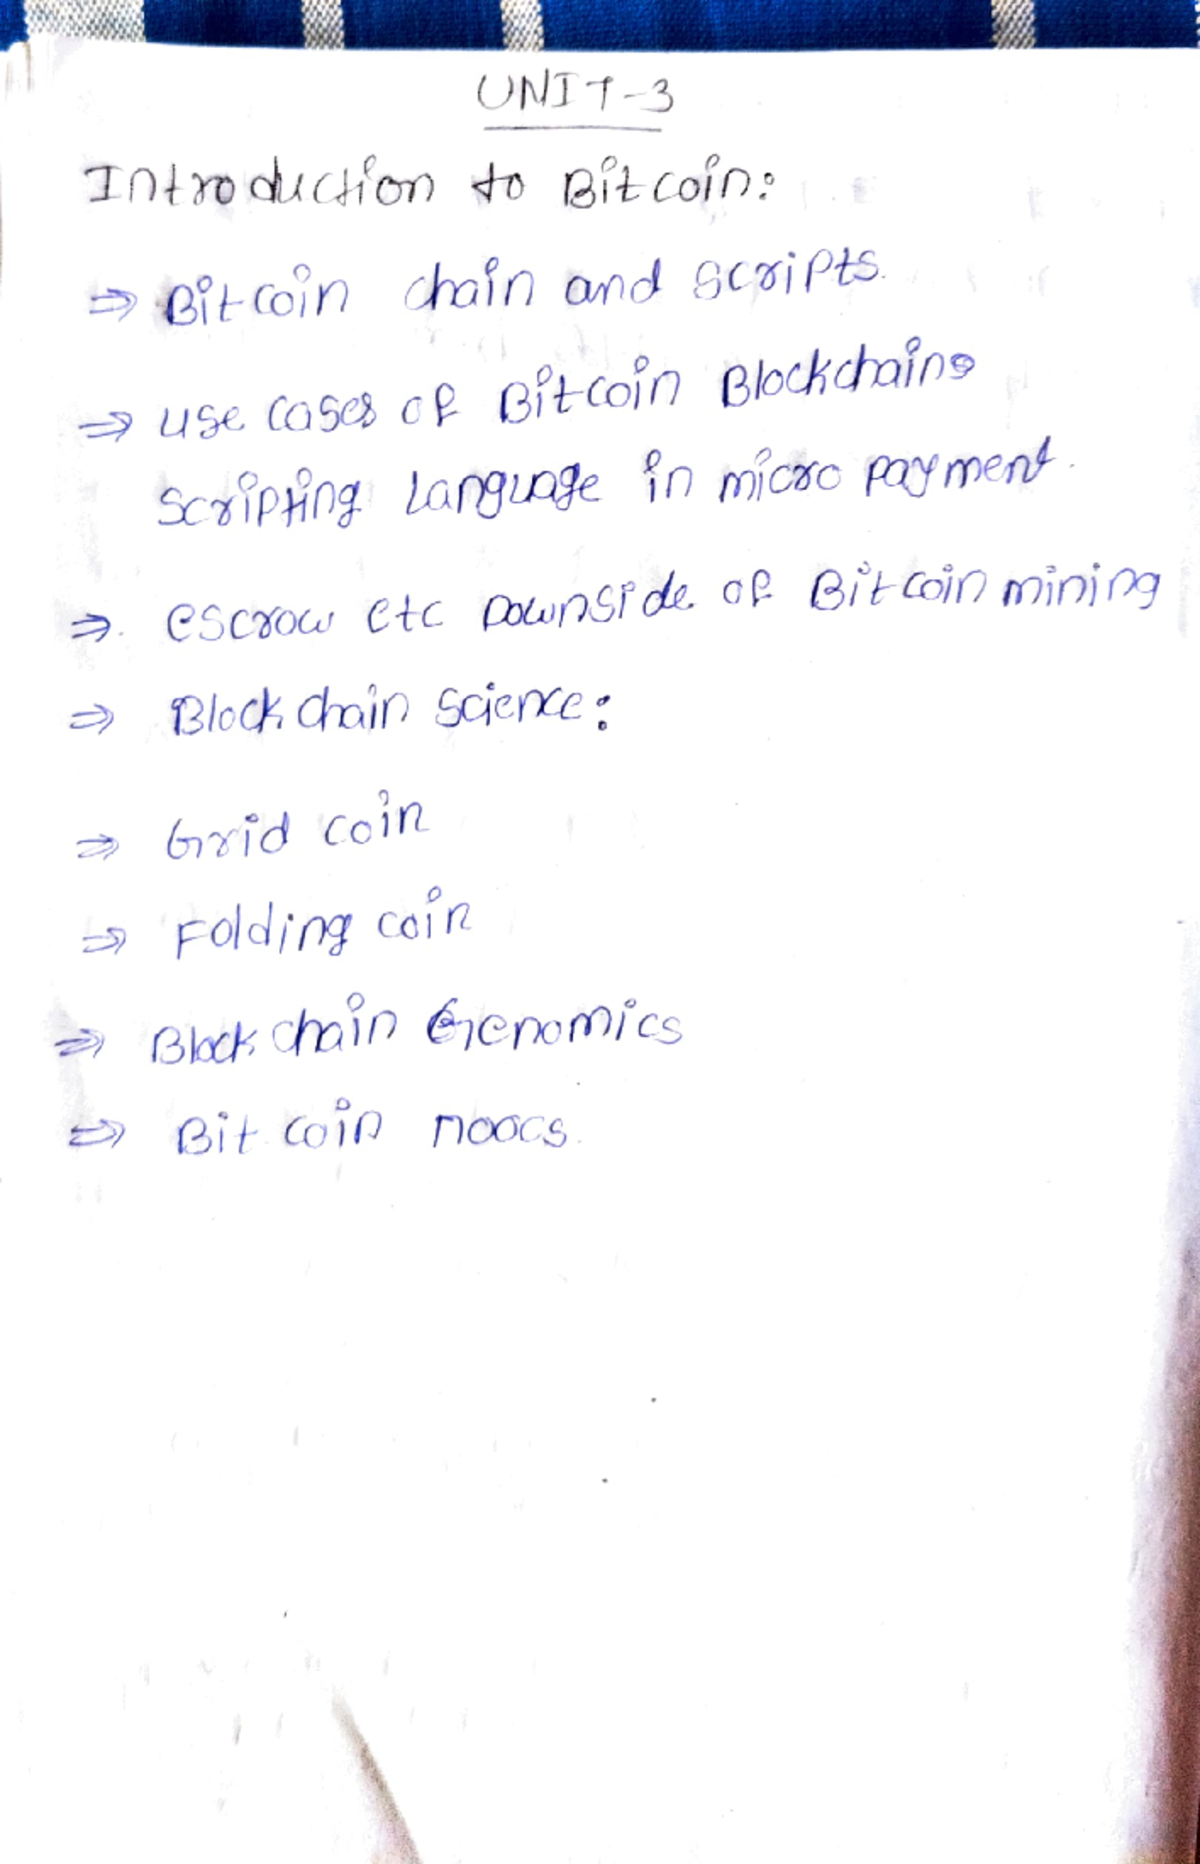 UNIT-3
Introduction to Bitcoin:
⇒ Bitcoin chain and scripts.
⇒ use cases of Bitcoin Blockchains
Scripting Language in micro payment.
⇒ escrow etc Downside of Bitcoin mining
⇒ Block chain science:
⇒ Grid coin
⇒ Folding coin
⇒ Block chain Genomics
⇒ Bit coin moocs.